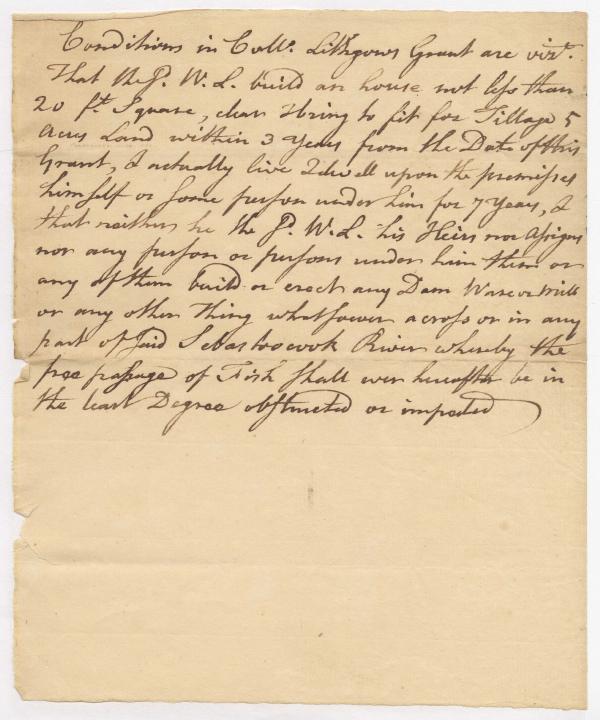 Conditions in Collo. Lithgows Grant are vizt.
That the sd. W. L. build an house not less than
20 ft. Square, clear & bring to fit for Tillage 5
Acres Land within 3 Years from the Date of this
Grant, & actually live & dwell upon the premisses
himself or some person under him for 7 Years, &
that neither he the sd. W. L. his Heirs nor Assigns
nor any person or persons under him them or
any of them build or erect any Dam Ware or Mill
or any other Thing whatsoever across or in any
part of said Sebastoocook River whereby the
free passage of Fish shall ever hereafter be in
the least Degree obstructed or impeded